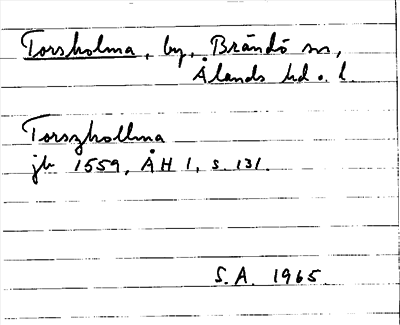 Torsholma, by, Brändö sn,
Ålands hd o. l.
Torszhollma
jb 1559, ÅH 1, s. 131.
S.A. 1965